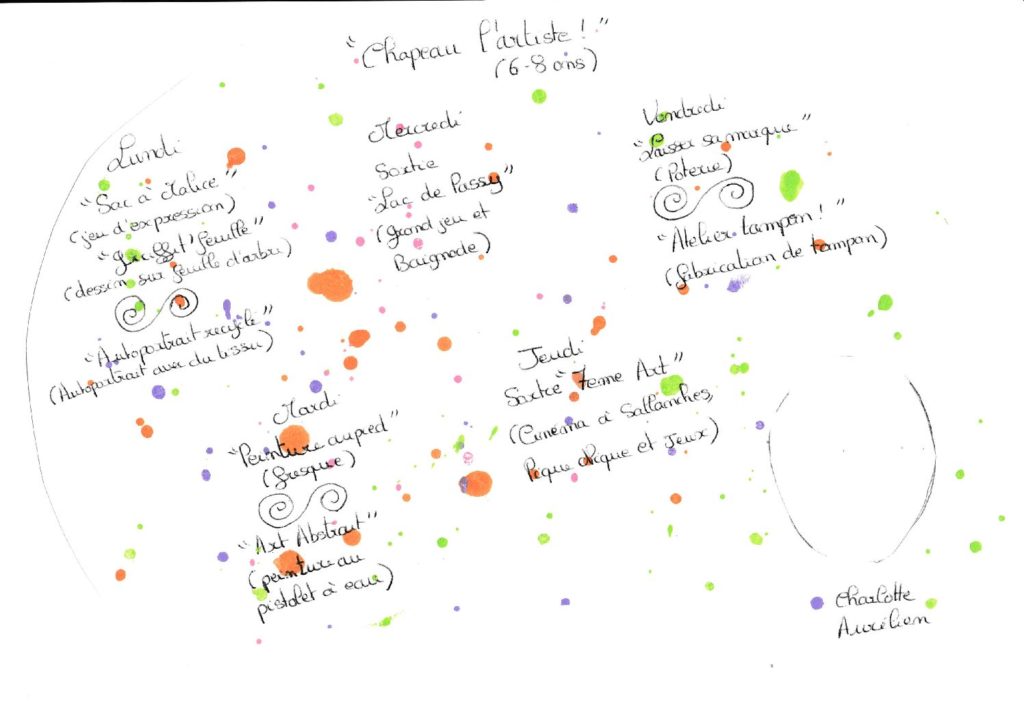 "Chapeau l'artiste !"
(6-8 ans)
Lundi
"Sac à Malice"
(jeu d'expression)
feuille"
(dessin sur feuille d'arbre)
"Autoportrait recyclé"
(Autoportrait avec du tissu)
Mardi
"Peinture au pied"
(fresque)
"Art Abstrait"
(peinture au
pistolet à eau)
Mercredi
Sortie
"Lac de Passy"
(Grand jeu et
Baignade)
Jeudi
Sortie "7eme Art"
(Cinéma à Sallanches,
Pique Nique et Jeux)
Vendredi
"Laisser sa marque"
(Poterie)
"Atelier tampon !"
(fabrication de tampon)
Charlotte
Aurélien